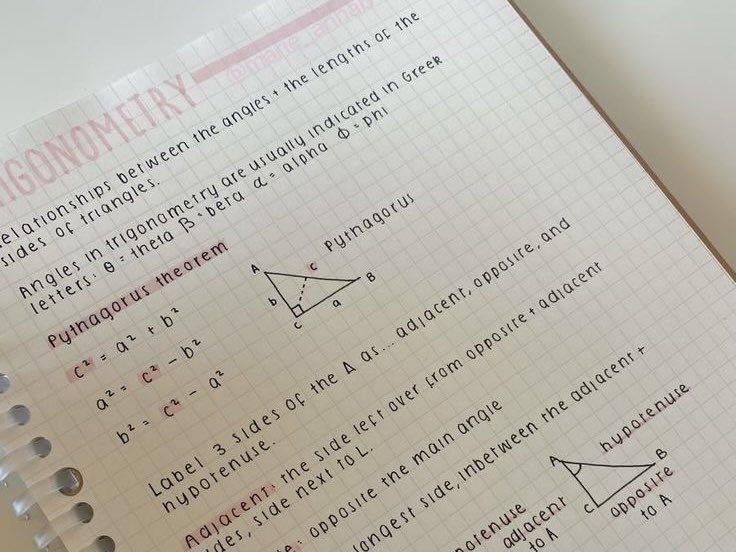 TRIGONOMETRY
relationships between the angles + the lengths of the
sides of triangles.
Angles in trigonometry are usually indicated in Greek
letters. θ = theta β = beta α = alpha Φ = phi
Pythagorus theorem
c² = a² + b²
a² = c² - b²
b² = c² - a²
A
c
B
b
a
C
Pythagorus
Label 3 sides of the Δ as... adjacent, opposite, and
hypotenuse.
Adjacent: the side left over from opposite + adjacent
sides, side next to L.
opposite the main angle
longest side, inbetween the adjacent +
A
hypotenuse
B
C
adjacent
to A
opposite
to A